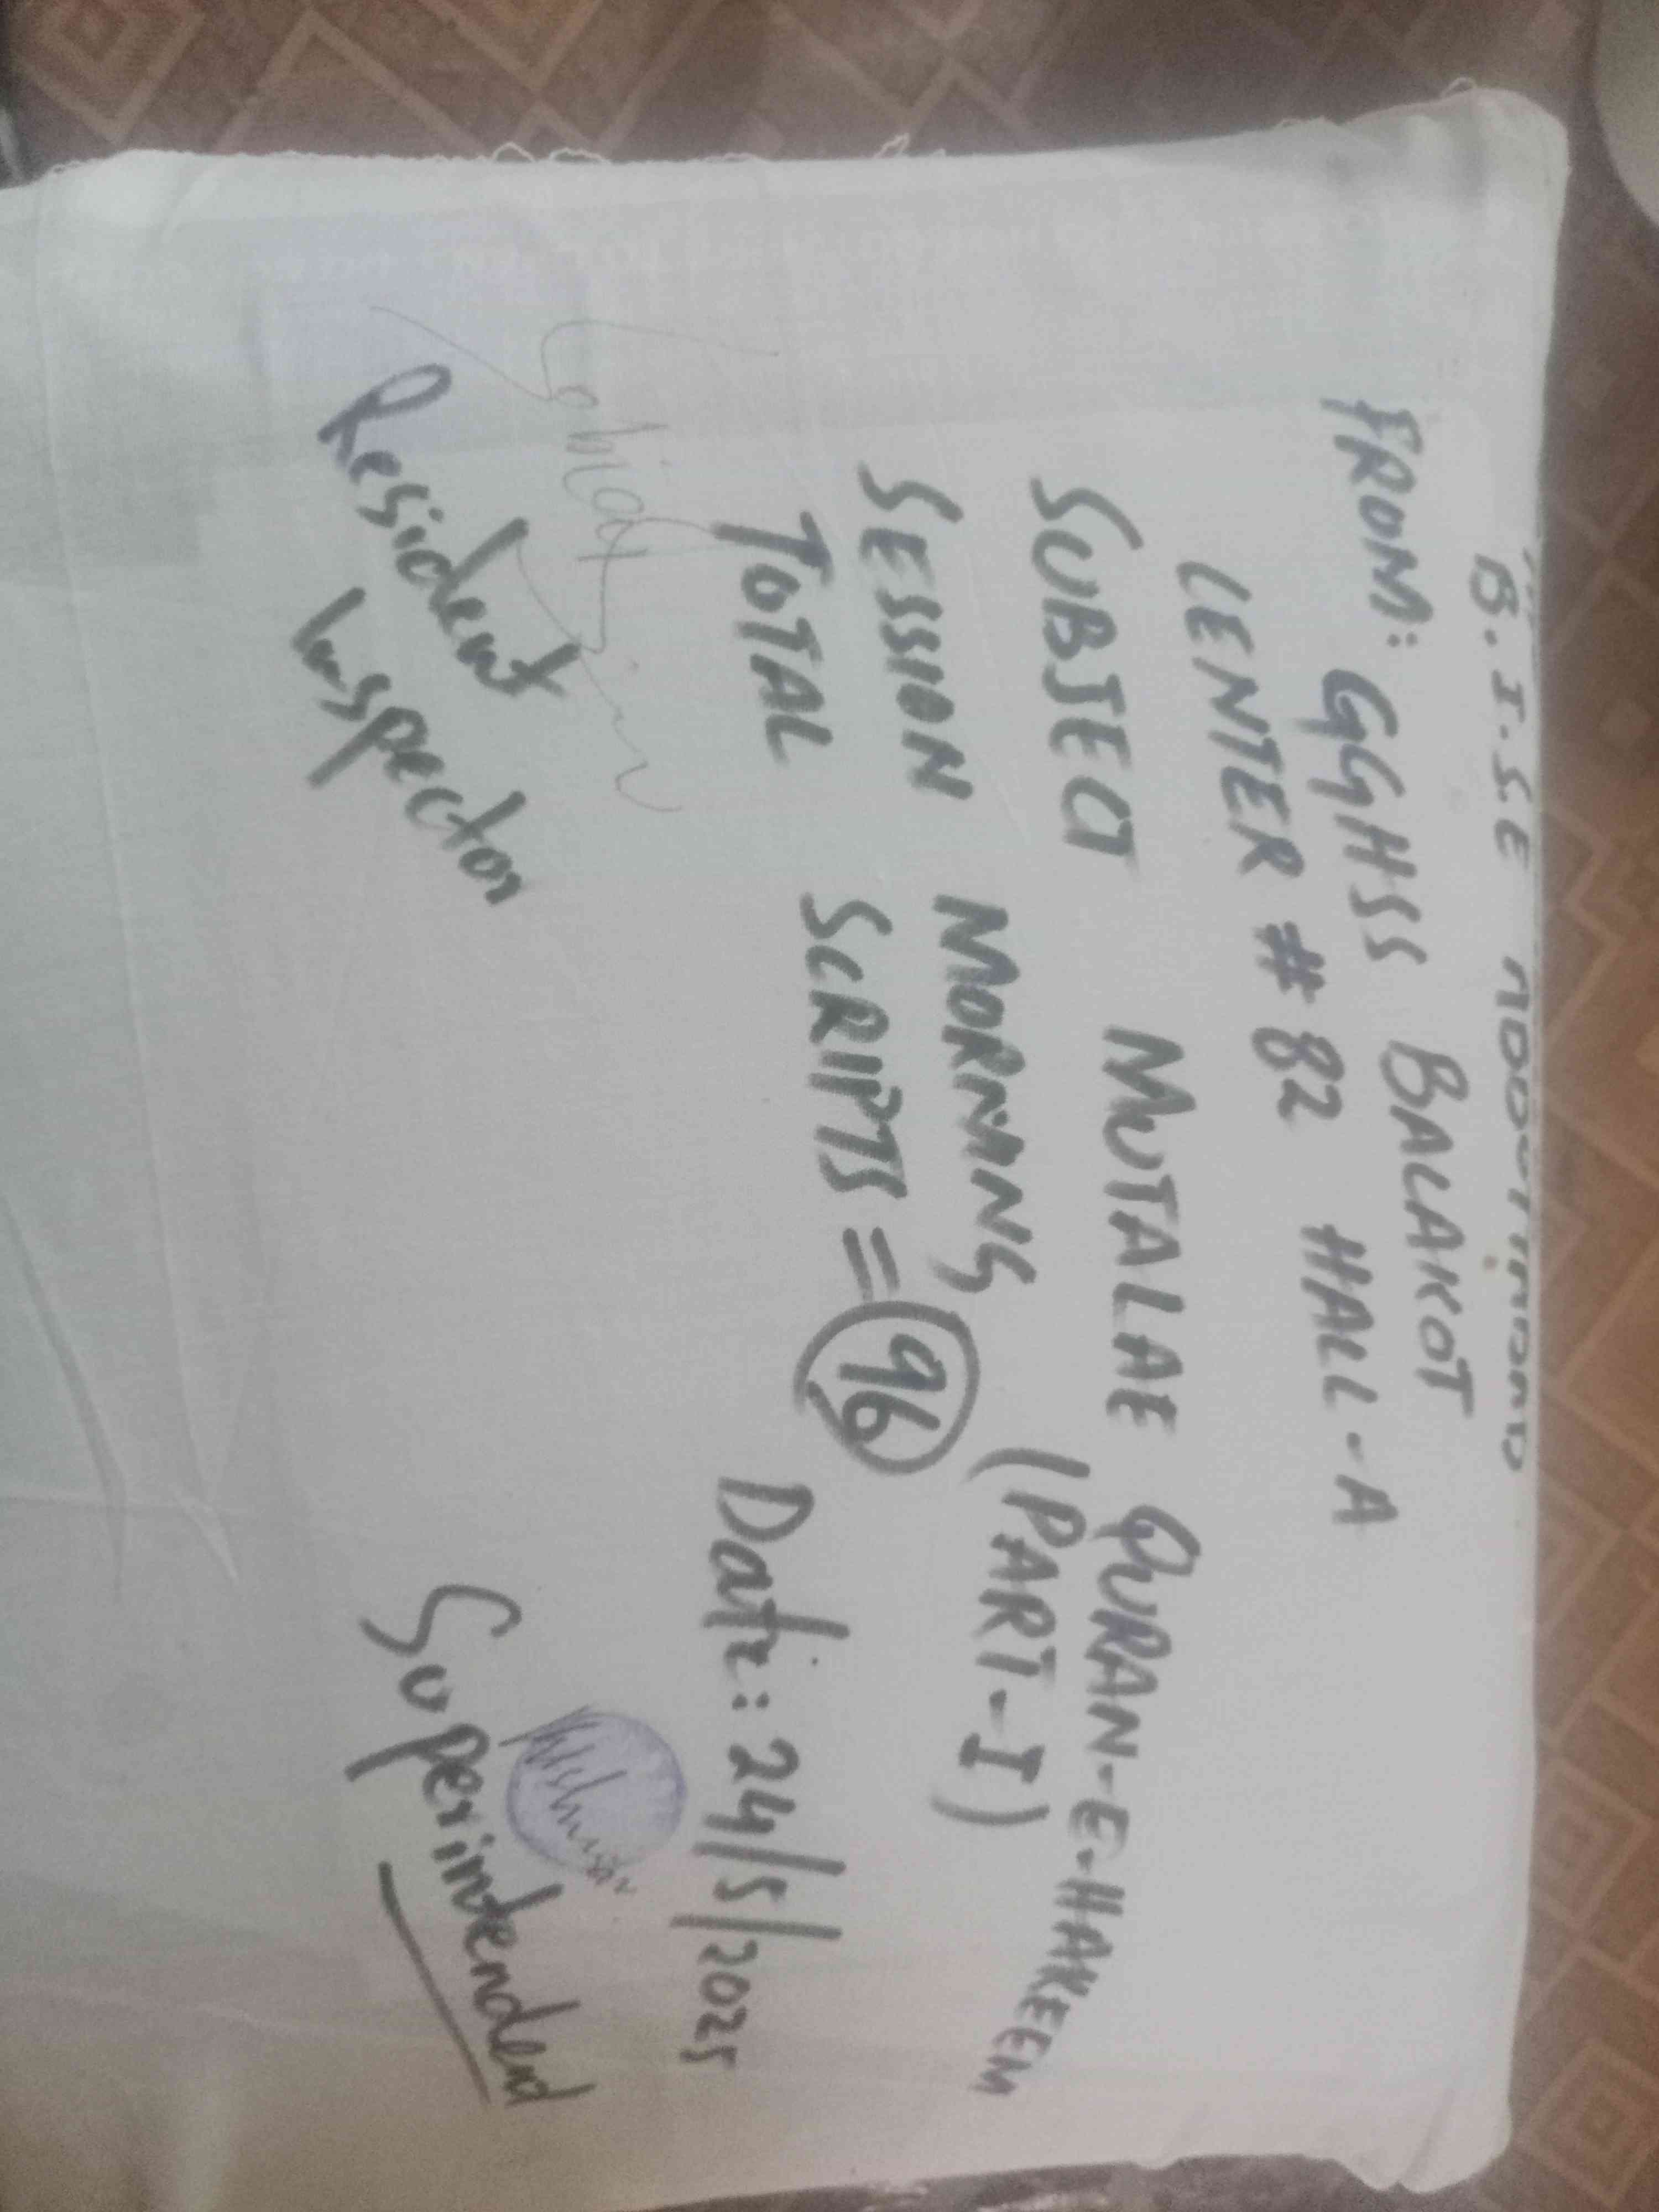 B.I.S.E ABBOTTABAD
FROM: GGHSS BALAKOT
CENTER # 82 HALL-A
SUBJECT MUTALAE QURAN-E-HAKEEM
SESSION MORNING (PART-I)
TOTAL SCRIPTS = 96
Date: 24/5/2025
Resident Inspector
Superintendend